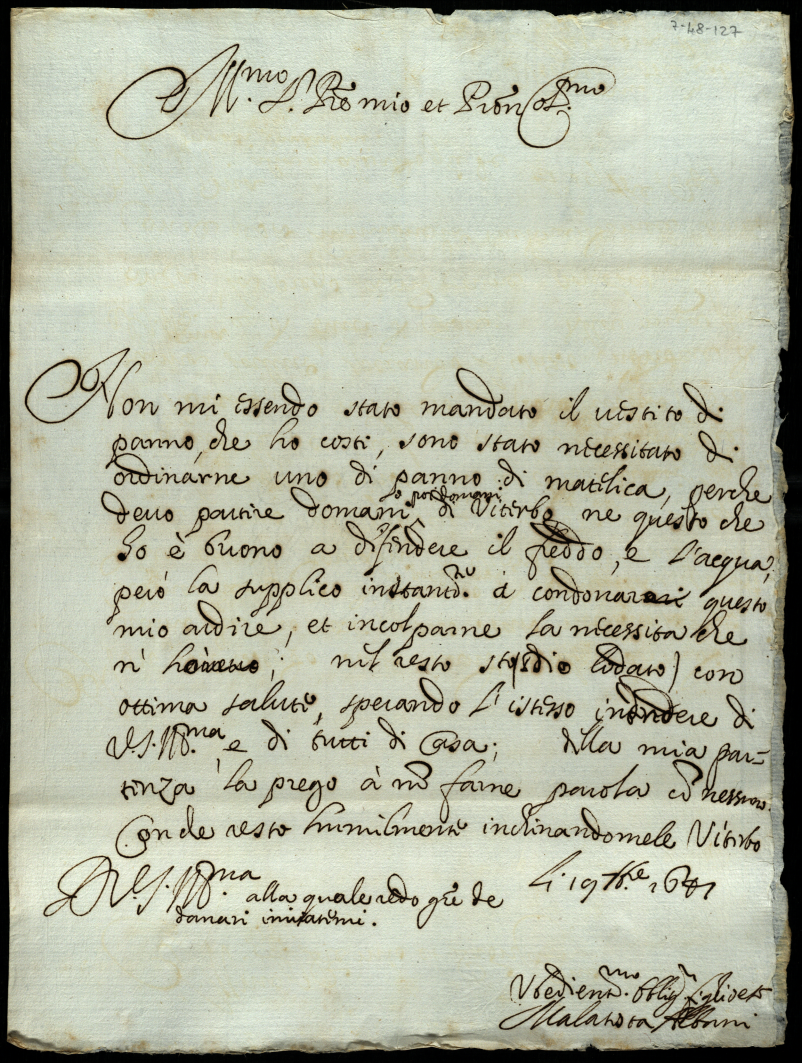 7-48-127
Ill.mo S.r P̃re mio et P̃ron Col.mo
Non mi essendo stato mandato il vestito di
panno, che ho costi, sono stato necessitato di
ordinarne uno di panno di matilica, perche
devo partire domani o posdomani di Viterbo ne questo che
ho è buono a difendere il freddo, e l'acqua,
però la supplico à condonar questo
mio ardire, et incolparne la necessita che
n' ; nel resto sto (Iddio lodato) con
ottima salute, sperando l'istesso intendere di
V.S. Ill.ma e di tutti di Casa; della mia par-
tenza la prego à nõ farne parola cõ nessuno.
Con che resto humilmente inchinandomele Viterbo
D V.S. Ill.ma alla quale redo gr̃e de li 19
danari inviatemi.
Vbedient.mo Oblig.
Malatesta Albani